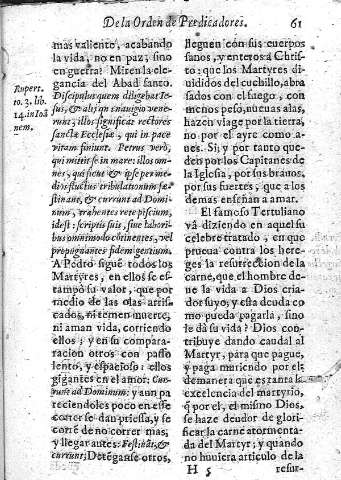 De la Orden de Predicadores. 61
mas valiente, acabando
la vida, no en paz, sino
en guerra? Miren la ele-
gancia del Abad santo.
Rupert.
to. 3. lib.
14. in Ioā
nem.
Discipulus quem diligebat Ie-
sus, & alij qn nauigio vene-
runt, illos significat rectores
sanctæ Ecclesiæ, qui in pace
vitam finiunt. Petrus verò,
qui mitit se in mare: illos om-
nes, qui sicut & ipse per me-
dios fluctus tribulationum fæ-
stinant, & currunt ad Domi-
num, trahentes rete piscium,
idest: scriptis suis, siue labori-
bus omnimodo obtinentes, vel
propugnantes fidem gentium.
A Pedro sigue todos los
Martyres, en ellos se es-
tampò su valor, que por
medio de las olas arris-
cados, ni temen muerte,
ni aman vida, corriendo
ellos; y en su compara-
racion otros con passo
lento, y espacioso: ellos
gigantes en el amor: Cur-
runt ad Dominum: y aun pa
reciendoles poco en esse
correr se dan priessa, y se
corrē de no correr mas,
y llegar antes: Festināt, &
currunt: Detenganse otros,
lleguen con sus cuerpos
sanos, y enteros à Chris-
to: que los Martyres di-
uididos del cuchillo, abra
sados con el fuego, con
menos peso, nueuas alas,
hazen viage por la tierra,
no por el ayre como a-
nes. Si; y por tanto que-
den por los Capitanes de
la Iglesia, por sus brauos,
por sus fuertes, que a los
demas enseñan a amar.
El famoso Tertuliano
và diziendo en aquel su
celebre tratado, en que
prueua contra los here-
ges la resurreccion de la
carne, que el hombre de-
ue la vida a Dios cria-
dor suyo, y esta deuda co
mo pueda pagarla, sino
le dà su vida? Dios con-
tribuye dando caudal al
Martyr, para que pague,
y paga muriendo por el:
demanera que es tanta la
excelencia del martyrio,
q̃ por el, el mismo Dios,
se haze deudor de glori-
ficar la carne atormenta-
da del Martyr; y quando
no huuiera articulo de la
H 5 resur-